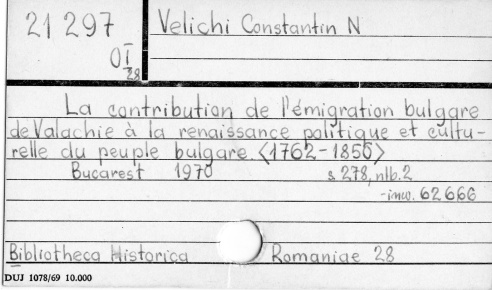 21 297 Velichi Constantin N
OI
28
La contribution de l'émigration bulgare
de Valachie à la renaissance politique et cultu-
relle du peuple bulgare <1762-1850>
Bucarest 1970 s 278, nlb. 2
-inw. 62 666
Bibliotheca Historica Romaniae 28
DUJ 1078/69 10.000